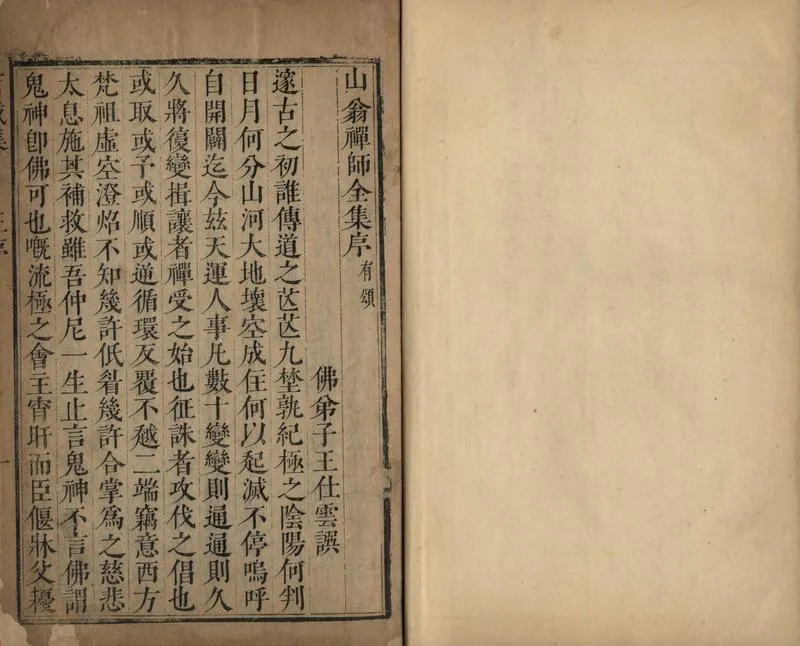 山翁禪師全集序有頌
佛弟子王仕雲譔
邃古之初誰傳道之芒芒九埜孰紀極之陰陽何判
日月何分山河大地壞空成住何以起滅不停嗚呼
自開闢迄今茲天運人事凡數十變變則通通則久
久將復變揖讓者禪受之始也征誅者攻伐之倡也
或取或予或順或逆循環反覆不越二端竊意西方
梵祖虛空澄焰不知幾許低眷幾許合掌為之慈悲
太息施其補救雖吾仲尼一生止言鬼神不言佛謂
鬼神卽佛可也嘅流極之會主宵旰而臣偃牀父耰